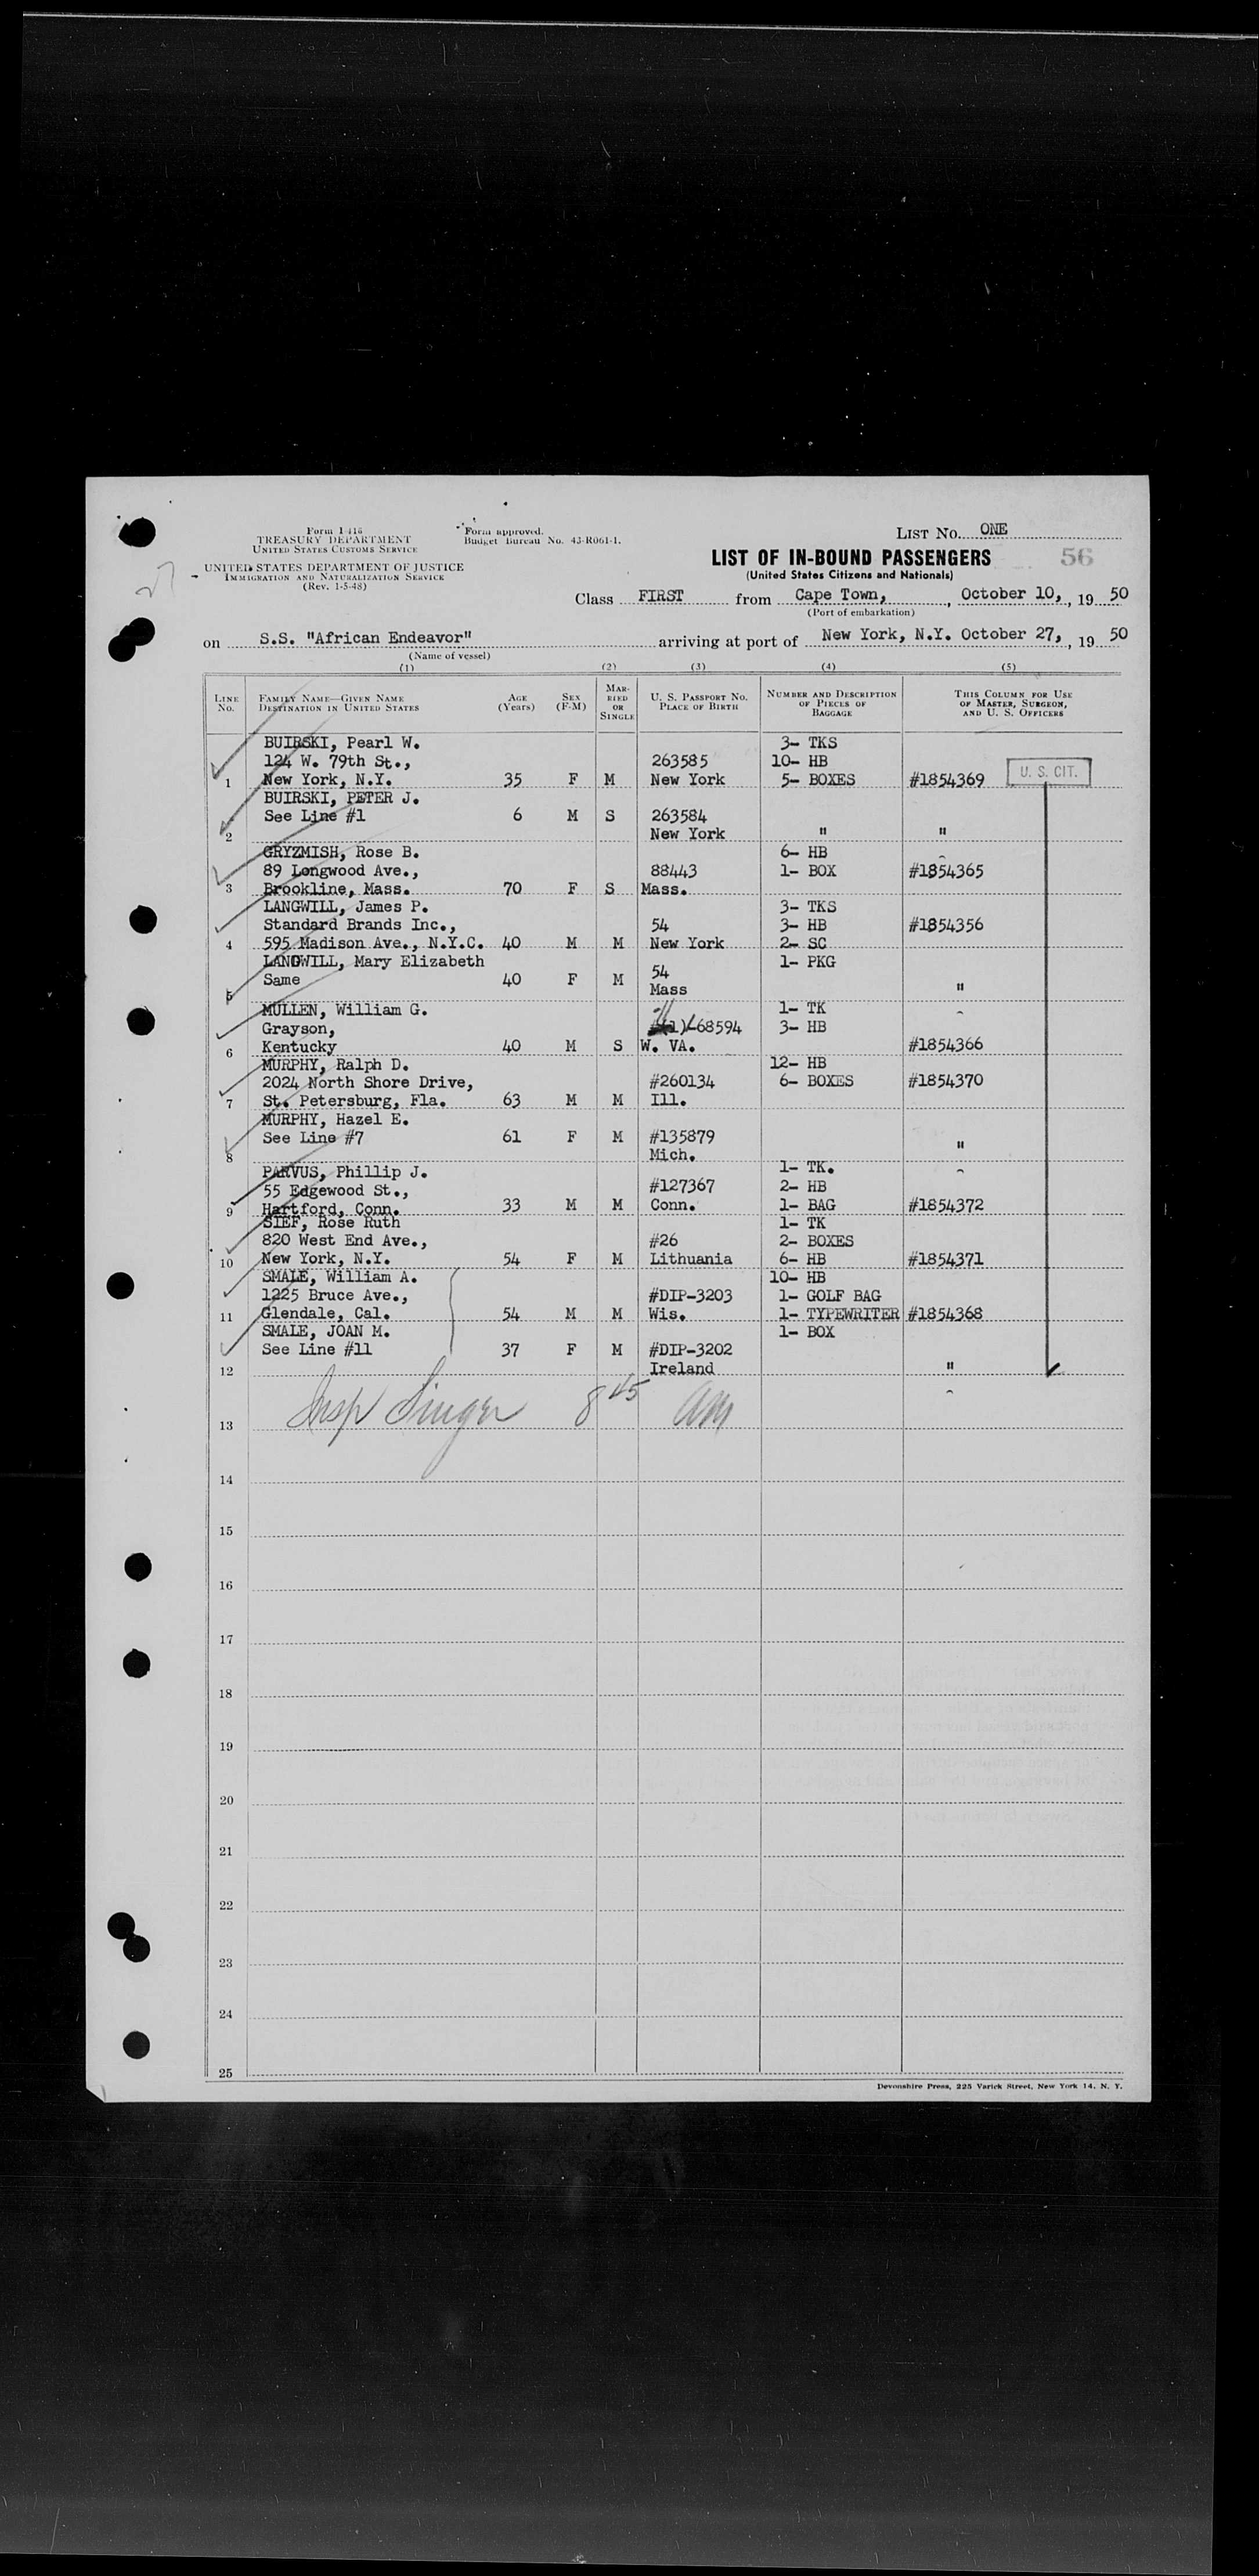 Form I 416
TREASURY DEPARTMENT
UNITED STATES CUSTOMS SERVICE
Form approved.
Budget Bureau No. 43-R061-1.
LIST NO. ONE
UNITED STATES DEPARTMENT OF JUSTICE
IMMIGRATION AND NATURALIZATION SERVICE
(Rev. 1-5-48)
LIST OF IN-BOUND PASSENGERS 56
(United States Citizens and Nationals)
Class FIRST from Cape Town, , October 10, , 19 50
(Port of embarkation)
on S.S. "African Endeavor" arriving at port of New York, N.Y. October 27, , 19 50
(Name of vessel)
(1) (2) (3) (4) (5)
LINE NO. FAMILY NAME—GIVEN NAME DESTINATION IN UNITED STATES AGE (Years) SEX (F-M) MARRIED OR SINGLE U. S. PASSPORT NO. PLACE OF BIRTH NUMBER AND DESCRIPTION OF PIECES OF BAGGAGE THIS COLUMN FOR USE OF MASTER, SURGEON, AND U. S. OFFICERS
BUIRSKI, Pearl W. 3- TKS
124 W. 79th St., 263585 10- HB
1 New York, N.Y. 35 F M New York 5- BOXES #1854369 U. S. CIT.
BUIRSKI, PETER J.
See Line #1 6 M S 263584
2 New York " "
GRYZMISH, Rose B. 6- HB
89 Longwood Ave., 88443 1- BOX #1854365
3 Brookline, Mass. 70 F S Mass.
LANGWILL, James P. 3- TKS
Standard Brands Inc., 54 3- HB #1854356
4 595 Madison Ave., N.Y.C. 40 M M New York 2- SC
LANGWILL, Mary Elizabeth 1- PKG
Same 40 F M 54
5 Mass "
MULLEN, William G. 1- TK
Grayson, 68594 3- HB
6 Kentucky 40 M S W. VA. #1854366
MURPHY, Ralph D. 12- HB
2024 North Shore Drive, #260134 6- BOXES #1854370
7 St. Petersburg, Fla. 63 M M Ill.
MURPHY, Hazel E.
See Line #7 61 F M #135879
8 Mich. "
PARVUS, Phillip J. 1- TK.
55 Edgewood St., #127367 2- HB
9 Hartford, Conn. 33 M M Conn. 1- BAG #1854372
SIEF, Rose Ruth 1- TK
820 West End Ave., #26 2- BOXES
10 New York, N.Y. 54 F M Lithuania 6- HB #1854371
SMALE, William A. 10- HB
1225 Bruce Ave., #DIP-3203 1- GOLF BAG
11 Glendale, Cal. 54 M M Wis. 1- TYPEWRITER #1854368
SMALE, JOAN M. 1- BOX
See Line #11 37 F M #DIP-3202
12 Ireland "
Insp Singer 8 45 am
13
14
15
16
17
18
19
20
21
22
23
24
25
Devonshire Press, 225 Varick Street, New York 14, N. Y.